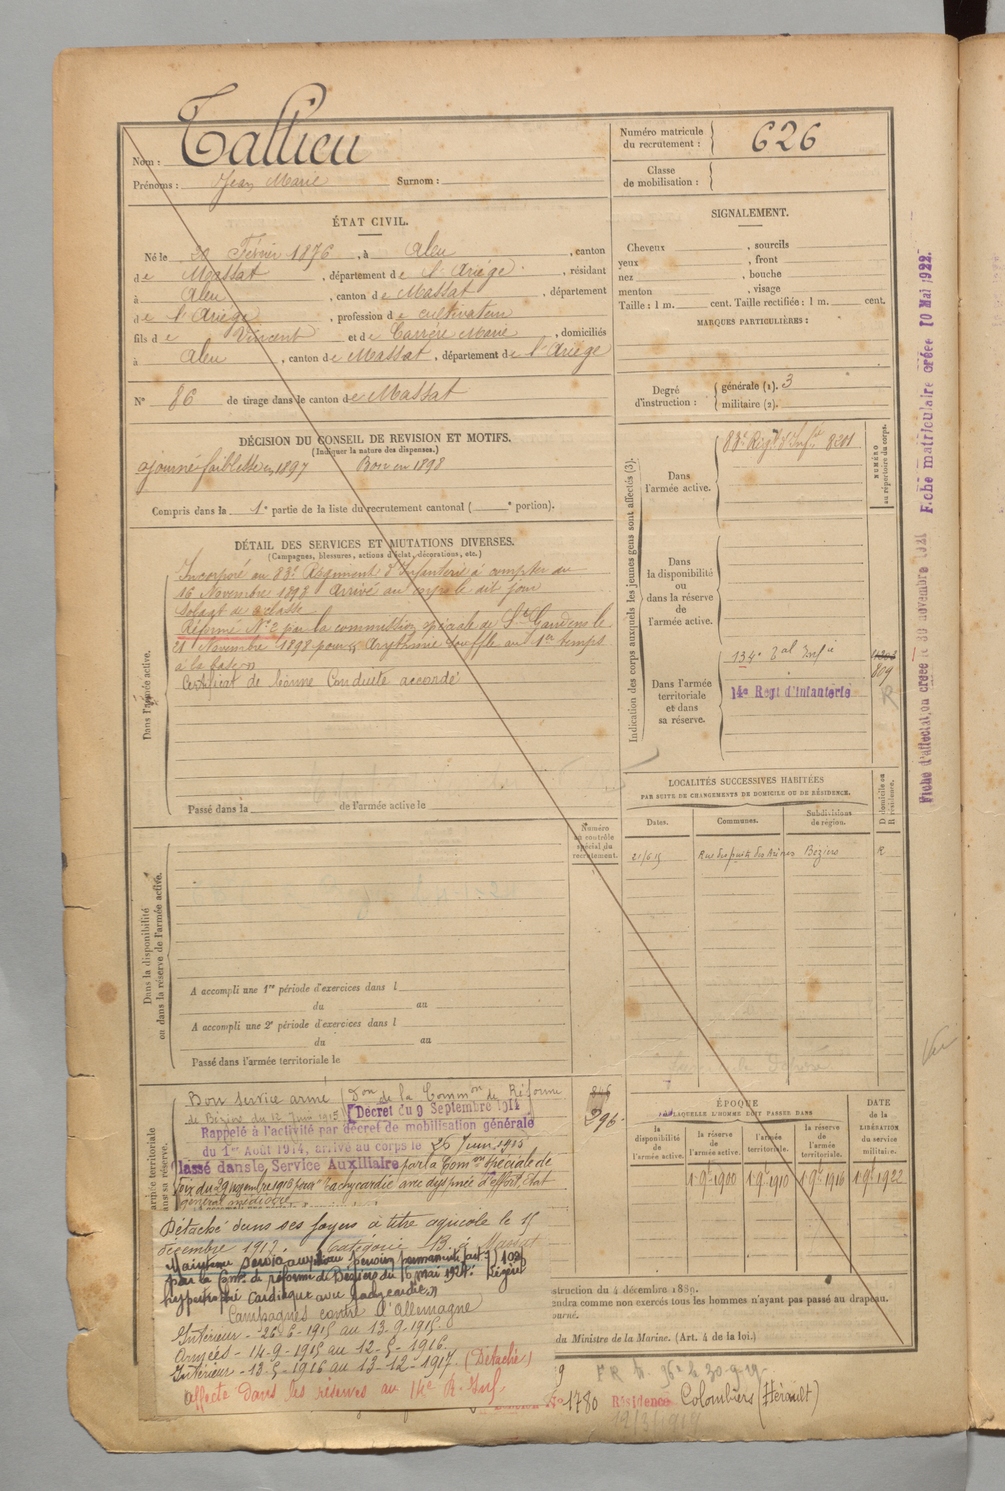 Nom : Tallieu
Prénoms : Jean Marie Surnom :
Numéro matricule du recrutement : 626
Classe de mobilisation :
ÉTAT CIVIL.
Né le 20 Février 1876, à Aleu, canton
de Massat, département de l'Ariège, résidant
à Aleu, canton de Massat, département
de l'Ariège, profession de cultivateur
fils de Vincent et de Carrère Marie, domiciliés
à Aleu, canton de Massat, département de l'Ariège
N° 86 de tirage dans le canton de Massat
DÉCISION DU CONSEIL DE REVISION ET MOTIFS.
(Indiquer la nature des dispenses.)
ajourné faiblesse en 1897 Bon en 1898
Compris dans la 1e partie de la liste du recrutement cantonal ( e portion).
DÉTAIL DES SERVICES ET MUTATIONS DIVERSES.
(Campagnes, blessures, actions d'éclat, décorations, etc.)
Dans l'armée active.
Incorporé au 83e Régiment d'Infanterie à compter du
16 Novembre 1898 Arrivé au corps le dit jour
soldat de 2e classe
Réformé N°2 par la commission spéciale de St Gaudens le
21 Novembre 1898 pour « Arythmie souffle au 1er temps
à la base »
Certificat de bonne Conduite accordé
Passé dans la de l'armée active le
Numéro au contrôle spécial du recrutement.
Dans la disponibilité ou dans la réserve de l'armée active.
A accompli une 1re période d'exercices dans l
du au
A accompli une 2e période d'exercices dans l
du au
Passé dans l'armée territoriale le
armée territoriale
Bon service armé Don de la Common de Réforme
de Béziers du 12 Juin 1915 Décret du 9 Septembre 1914
Rappelé à l'activité par décret de mobilisation générale
du 1er Août 1914, arrivé au corps le 26 Juin 1915
Classé dans le Service Auxiliaire par la Comon spéciale de
Foix du 29 novembre 1915 pour "tachycardie avec dyspnée d'effort, Etat
général médiocre
846
296
Détaché dans ses foyers à titre agricole le 15
décembre 1917. Catégorie B. à Massat
Maintenu service auxiliaire
par la Com. de réforme de Béziers du 16 mai 192
hypertrophie cardiaque avec tachycardie »
Campagnes contre l'Allemagne
Intérieur - 26-6-1915 au 13-9-1915
Armées - 14-9-1915 au 12-5-1916.
Intérieur - 13-5-1916 au 13-12-1917. (Détaché)
affecté dans les réserves au 14e R. Inf.
SIGNALEMENT.
Cheveux , sourcils
yeux , front
nez , bouche
menton , visage
Taille : 1 m. cent. Taille rectifiée : 1 m. cent.
MARQUES PARTICULIÈRES :
Degré d'instruction : générale (1). 3
militaire (2).
Indication des corps auxquels les jeunes gens sont affectés (3).
NUMÉRO au répertoire du corps.
Dans l'armée active.
83e Régt d'Infie 8201
Dans la disponibilité ou dans la réserve de l'armée active.
Dans l'armée territoriale et dans sa réserve.
134e Tal Infie
14e Régt d'Infanterie
809
R
LOCALITÉS SUCCESSIVES HABITÉES
PAR SUITE DE CHANGEMENTS DE DOMICILE OU DE RÉSIDENCE.
Dates. Communes. Subdivisions de région. D domicile ou R résidence.
21/6.15 Rue du puits des Arènes Beziers R
ÉPOQUE
À LAQUELLE L'HOMME DOIT PASSER DANS
DATE de la LIBÉRATION du service militaire.
la disponibilité de l'armée active. la réserve de l'armée active. l'armée territoriale. la réserve de l'armée territoriale.
1er 9bre 1900 1er 9bre 1910 1er 9bre 1916 1er 9bre 1922
struction du 4 décembre 1889.
endra comme non exercés tous les hommes n'ayant pas passé au drapeau.
ourné.
du Ministre de la Marine. (Art. 4 de la loi.)
1780 Résidence Colombiers (Hérault)
Fiche d'affectation créée le 30 novembre 1921
Fiche matriculaire créée 10 Mai 1922.